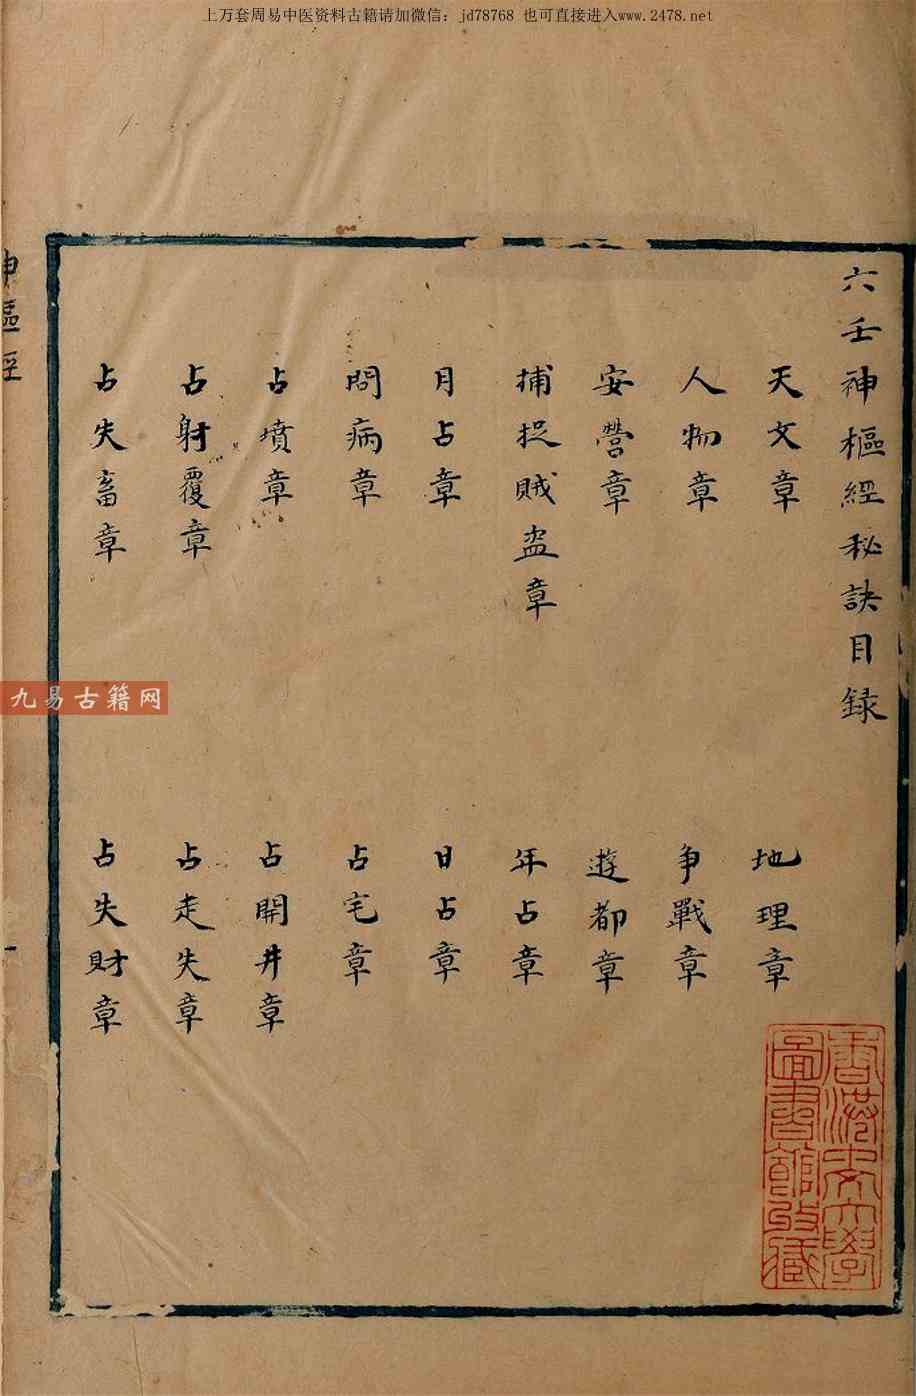 上万套周易中医资料古籍请加微信：jd78768 也可直接进入www.2478.net
六壬神樞經秘訣目録
天文章
地理章
人物章
争戰章
安營章
遊都章
捕捉賊盗章
年占章
月占章
日占章
問病章
占宅章
占墳章
占開井章
占射覆章
占走失章
占失畜章
占失財章
神樞經
一
九易古籍网
香港中文大學
圖書館收藏